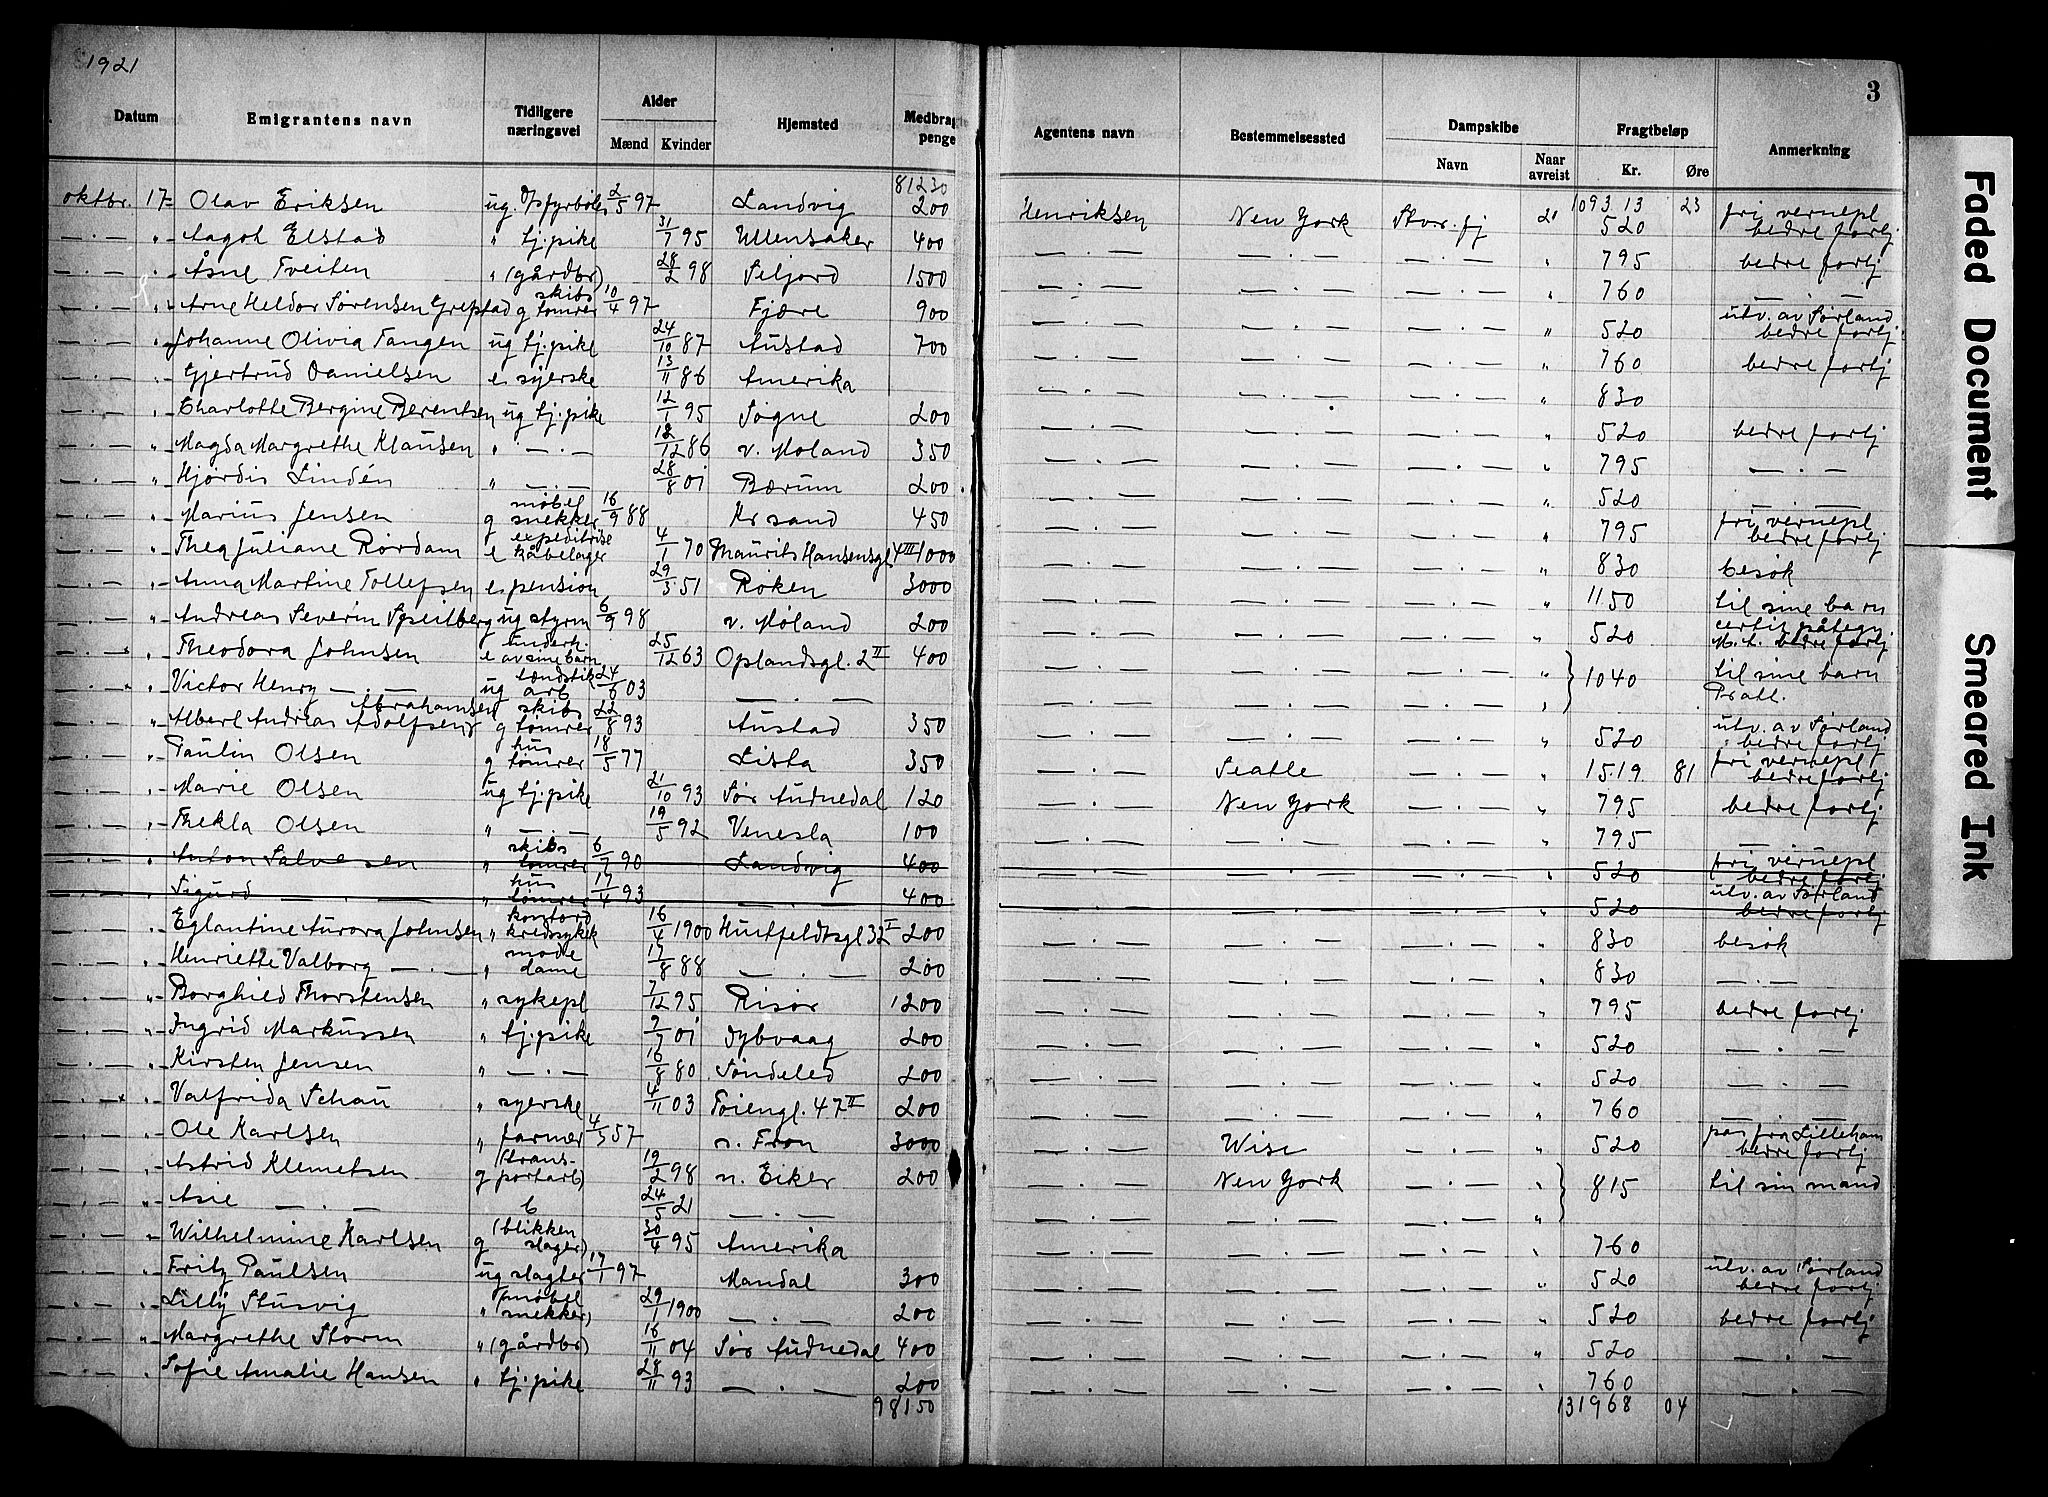 1921
3
Datum | Emigrantens navn | Tidligere næringsvei | Alder Mænd Kvinder | Hjemsted | Medbragte penge | Agentens navn | Bestemmelsessted | Dampskibe Navn Naar avreist | Fragtbeløp Kr. Øre | Anmerkning
81230 | 109313 23
oktbr. 17 Olav Eriksen ug. fyrbøter 2/5 97 Landvig 200 Henriksen New York Stv.fj 21 520 fri vernepl bedre forhj
— . — " Aagot Elstad " tj.pike 31/7 95 Ullensaker 400 — . — — . — — . — " 795 bedre forhj
— . — " Åsne Tveiten " (gårdbr) 28/2 98 Seljord 1500 — . — — . — — . — " 760 — . —
— . — " Arne Heldor Sørensen Grefstad g skibstømrer 10/4 97 Fjære 900 — . — — . — — . — " 520 utv. av Sørland bedre forhj
— . — " Johanne Olivia Tangen ug tj.pike 24/10 87 Austad 700 — . — — . — — . — " 760 bedre forhj
— . — " Gjertrud Danielsen e syerske 13/11 86 Amerika — . — — . — — . — " 830
— . — " Charlotte Bergine Berentsen ug tj.pike 12/1 95 Søgne 200 — . — — . — — . — " 520 bedre forhj
— . — " Magda Margrethe Klausen " — . — 12/12 86 v. Moland 350 — . — — . — — . — " 795 — . —
— . — " Hjördis Lindén " — . — 28/8 01 Bærum 200 — . — — . — — . — " 520
— . — " Marius Jensen g møbelsnekker 16/9 88 Krsand 450 — . — — . — — . — " 795 fri vernepl bedre forhj
— . — " Thea Juliane Rørdam e expeditrise kåbelager 4/1 70 Maurits Hansensgt 4 III 1000 — . — — . — — . — " 830 besøk
— . — " Anna Martine Tollefsen e pension 29/3 51 Røken 3000 — . — — . — — . — " 1150 til sine barn
— . — " Andreas Severin Speitberg ug styrm 6/9 98 v. Moland 200 — . — — . — — . — " 520 certif påtegn M.t. bedre forhj
— . — " Theodora Johnsen e underh av sine barn 25/12 63 Oplandsgt. 2 II 400 — . — — . — — . — " } 1040 til sine barn
— . — " Victor Henry — . — ug arb 24/6 03 — . — — . — — . — — . — " Pratt.
— . — " Albert Andreas Adolfsen Abrahamsen g skibstømrer 22/8 93 Austad 350 — . — — . — — . — " 520 utv. av Sørland bedre forhj
— . — " Paulin Olsen g hustømrer 18/5 77 Lista 350 — . — Seatle — . — " 1519 81 fri vernepl bedre forhj
— . — " Marie Olsen ug tj.pike 21/10 93 Sør Audnedal 120 — . — New York — . — " 795 bedre forhj
— . — " Thekla Olsen " — . — 19/5 92 Venesla 100 — . — — . — — . — " 795 — . —
— . — " Anton Salvesen " skibstømrer 6/7 90 Landvig 400 — . — — . — — . — " 520 fri vernepl bedre forhj
— . — " Sigurd — . — " hustømrer 17/4 93 — . — 400 — . — — . — — . — " 520 utv. av Sørland bedre forhj
— . — " Eglantine Aurora Johnsen " 16/4 1900 Huitfeldtsgt 32 I 200 — . — — . — — . — " 830 besøk
— . — " Henriette Valborg — . — " modedame 17/8 88 — . — 200 — . — — . — — . — " 830 — . —
— . — " Borghild Thorstensen " sykepl 7/12 95 Risør 1200 — . — — . — — . — " 795 bedre forhj
— . — " Ingrid Markussen " tj.pike 9/7 01 Dybvaag 200 — . — — . — — . — " 520 — . —
— . — " Kirsten Jensen " — . — 16/8 80 Søndeled 200 — . — — . — — . — " 520 — . —
— . — " Valfrida Schau " syerske 4/11 03 Tøiengt. 47 II 200 — . — — . — — . — " 760 — . —
— . — " Ole Karlsen " farmer 4/5 57 n. Fron 3000 — . — Wisc — . — " 520 pas fra Lilleham bedre forhj
— . — " Astrid Klemetsen g (transportarb) 19/2 98 n. Eiker 200 — . — New York — . — " } 815 til sin mand
— . — " Asie — . — b 24/5 21 — . — — . — — . — — . — "
— . — " Wilhelmine Karlsen g (blikkenslager) 30/4 95 Amerika — . — — . — — . — " 760
— . — " Fritz Paulsen ug slagter 17/1 97 Mandal 300 — . — — . — — . — " 520 utv. av Sørland bedre forhj
— . — " Lilly Stusvig " (møbelsnekker) 29/1 1900 — . — 200 — . — — . — — . — " 520 bedre forhj
— . — " Margrethe Storm " (gårdbr) 16/11 04 Sør Audnedal 400 — . — — . — — . — " 520 — . —
— . — " Sofie Amalie Hansen " tj.pike 28/11 93 — . — 200 — . — — . — — . — " 760 — . —
98150 | 131968 04
Faded Document
Smeared Ink